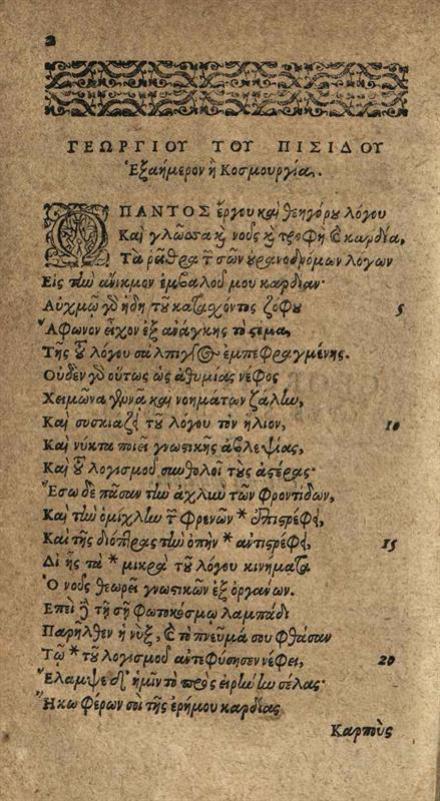 2
ΓΕΩΡΓΙΟΥ ΤΟΥ ΠΙΣΙΔΟΥ
Ἑξαήμερον ἢ Κοσμουργία.
Ὦ ΠΑΝΤΟΣ ἔργου καὶ θεηγόρου λόγου
Καὶ γλῶσσα καὶ νοῦς καὶ τροφὴ καὶ καρδία,
Τὰ ῥεῖθρα τῶν σῶν οὐρανοδρόμων λόγων
Εἰς τὴν ἄνικμον ἐμβαλοῦ μου καρδίαν·
Αὐχμῷ γὰρ ἤδη τοῦ κατασχόντος ζόφου 5
Ἄφωνον εἶχον ἐξ ἀνάγκης τὸ στόμα,
Τῆς τοῦ λόγου σάλπιγγος ἐμπεφραγμένης.
Οὐδὲν γὰρ οὕτως ὡς ἀθυμίας νέφος
Χειμῶνα γεννᾷ καὶ νοημάτων ζάλην,
Καὶ συσκιάζει τοῦ λόγου τὸν ἥλιον, 10
Καὶ νύκτα ποιεῖ γνωστικῆς ἀβλεψίας,
Καὶ τοῦ λογισμοῦ συνθολοῖ τοὺς ἀστέρας·
Ἔσω δὲ πᾶσαν τὴν ἀχλὺν τῶν φροντίδων,
Καὶ τὴν ὁμίχλην τῶν φρενῶν * ἐπιστρέφει,
Καὶ τῆς διόπτρας τὴν ὀπὴν * ἀντιστρέφει, 15
Δι' ἧς τὰ * μικρὰ τοῦ λόγου κινήματα
Ὁ νοῦς θεωρεῖ γνωστικῶν ἐξ ὀργάνων.
Ἐπεὶ δὲ τῇ σῇ φωτοκόσμῳ λαμπάδι
Παρῆλθεν ἡ νὺξ, καὶ τὸ πνεῦμά σου φθάσαν
Τῷ * τοῦ λογισμοῦ ἀντεφύσησεν νέφει, 20
Ἔλαμψε δ' ἡμῖν τὸ πρὸς εἰρήνην σέλας·
Ἥκω φέρων σοι τῆς ἐρήμου καρδίας
Καρποὺς